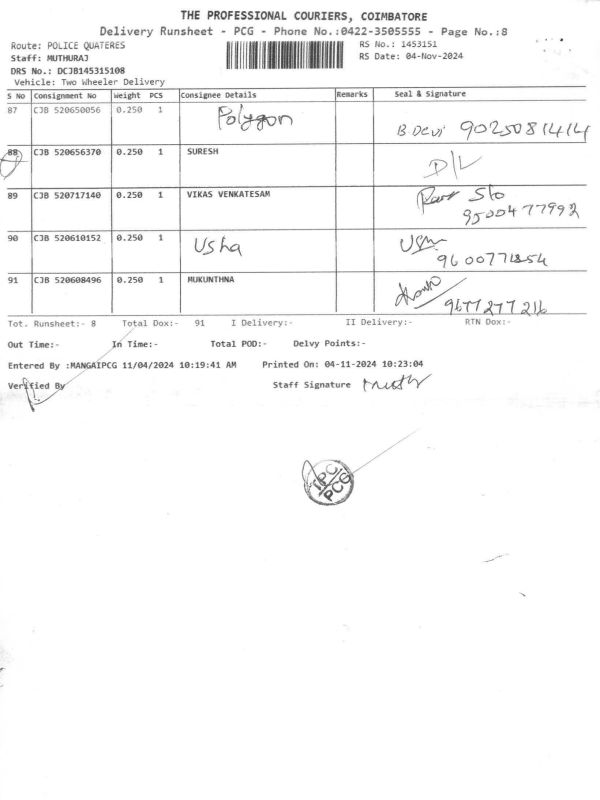 THE PROFESSIONAL COURIERS, COIMBATORE
Delivery Runsheet - PCG - Phone No.:0422-3505555 - Page No.:8
Route: POLICE QUATERES
RS No.: 1453151
Staff: MUTHURAJ
RS Date: 04-Nov-2024
DRS No.: DCJB145315108
Vehicle: Two Wheeler Delivery
S No Consignment No Weight PCS Consignee Details Remarks Seal & Signature
87 CJB 520650056 0.250 1 Polygon
B. Devi 9025081414
88 CJB 520656370 0.250 1 SURESH D/L
89 CJB 520717140 0.250 1 VIKAS VENKATESAM S/o
9500477992
90 CJB 520610152 0.250 1 Usha
91 CJB 520608496 0.250 1 MUKUNTHNA
9677277216
Tot. Runsheet:- 8 Total Dox:- 91 I Delivery:- II Delivery:- RTN Dox:-
Out Time:- In Time:- Total POD:- Delvy Points:-
Entered By :MANGAIPCG 11/04/2024 10:19:41 AM Printed On: 04-11-2024 10:23:04
Verified By Staff Signature
PCG